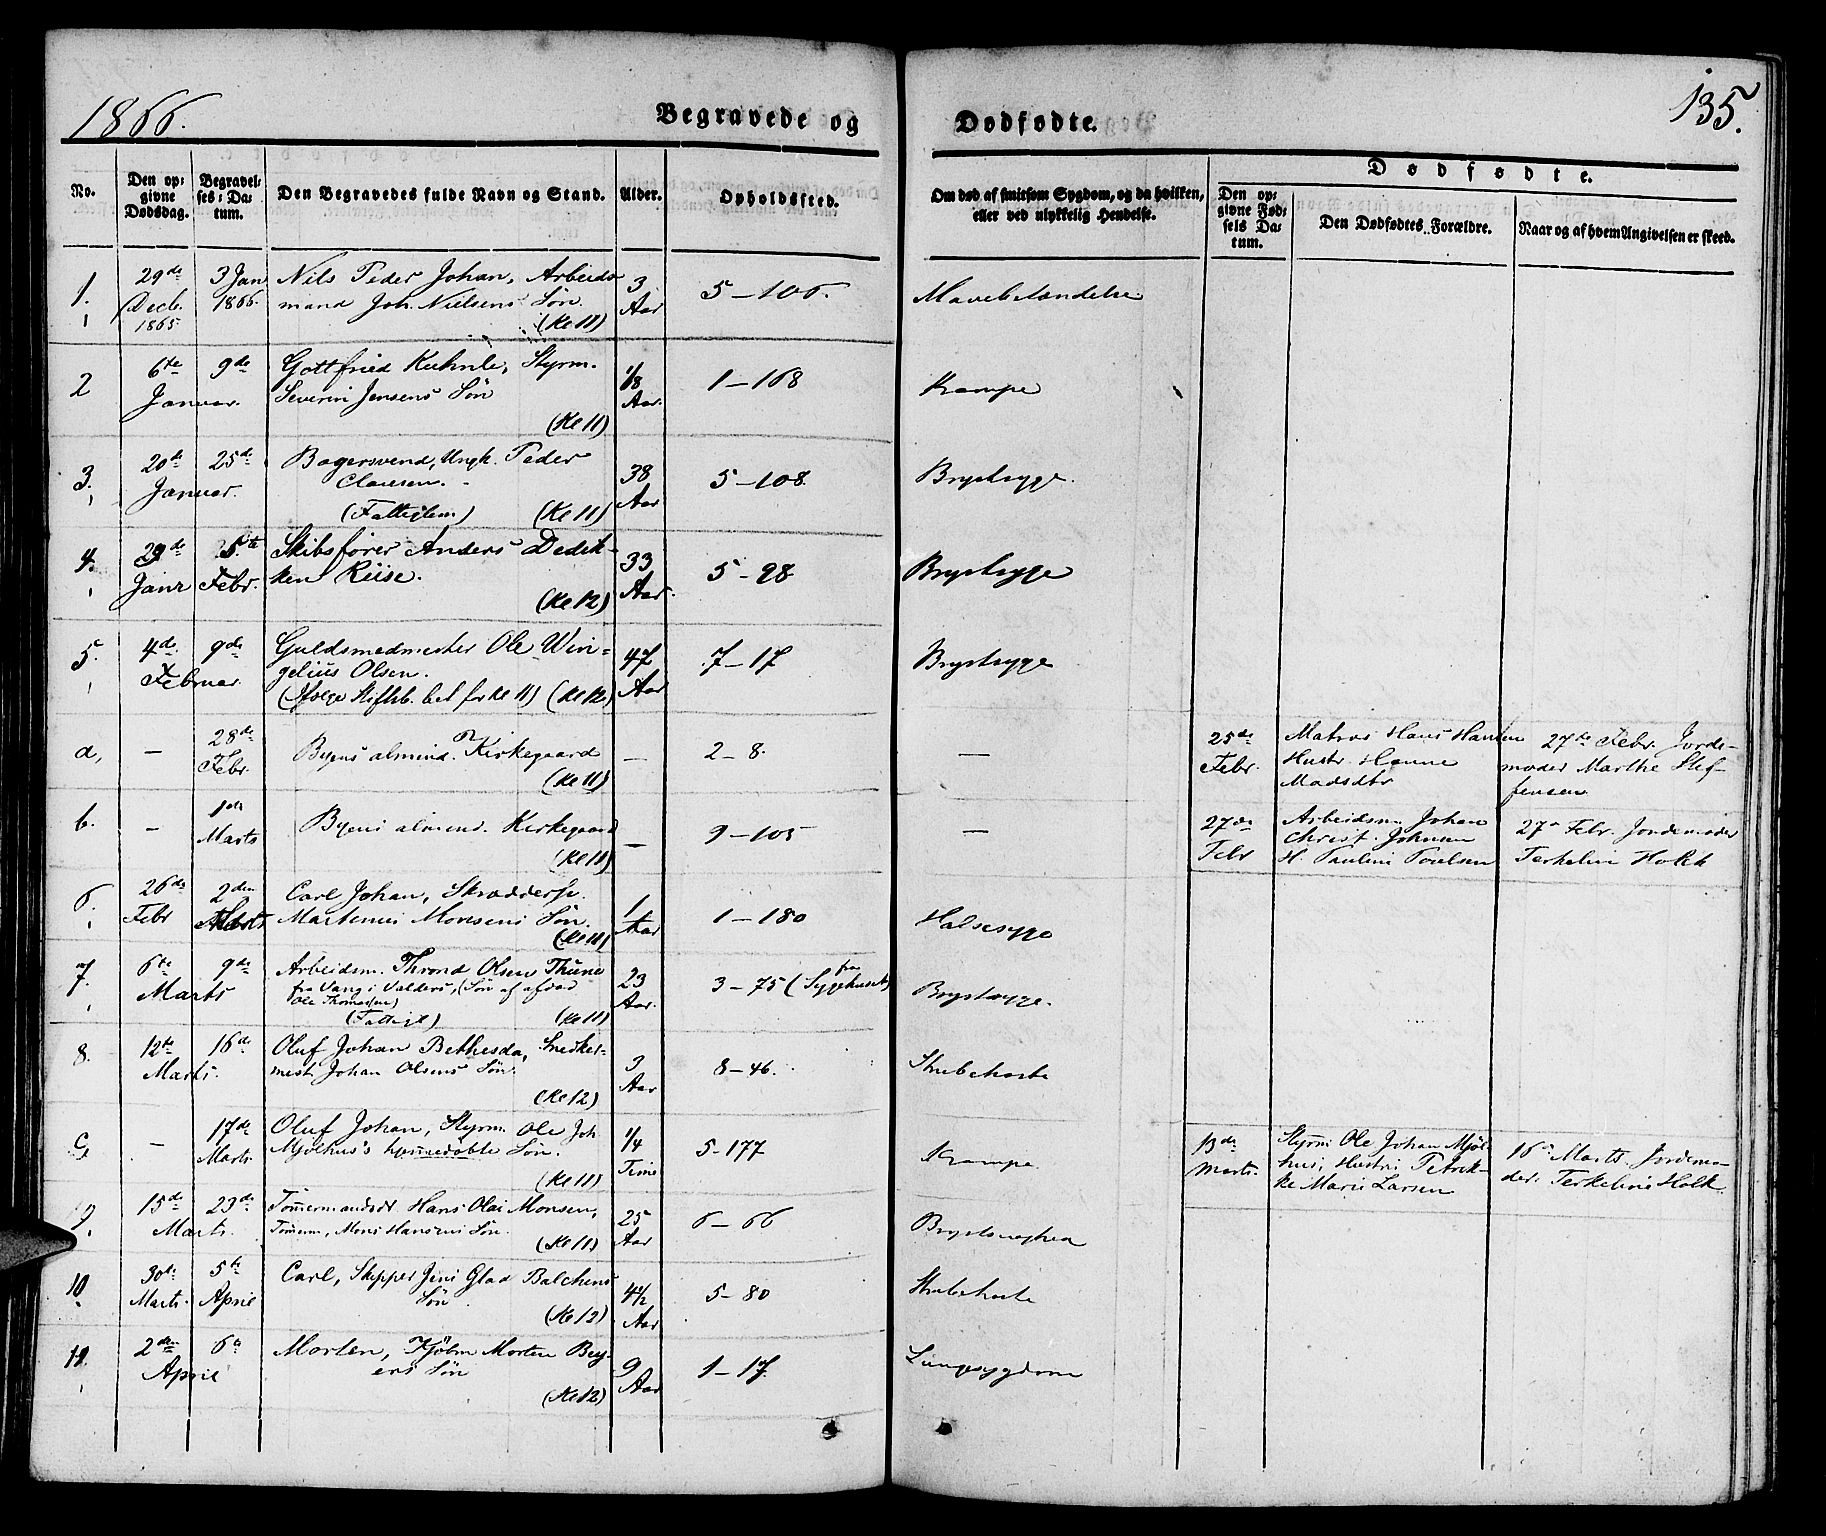 1866.
Begravede og
Dødfødte.
135.
No.
Den op-
givne
Dødsdag.
Begravel-
ses-Da-
tum.
Den Begravedes fulde Navn og Stand.
Alder.
Opholdssted.
Om død af smitsom Sygdom, og da hvilken,
eller ved ulykkelig Hendelse.
Dødfødte.
Den op-
givne Fød-
sels Da-
tum.
Den Dødfødtes Forældre.
Naar og af hvem Angivelsen er skeed.
1.
29de
Decb.
1865
3 Jan
1866.
Nils Peder Johan, Arbeids
mand Joh. Nielsens Søn
(Kl 11)
3
Aar
5 – 106.
Mavebetændelse
2
6te
Januar.
9de
Gottfried Kuhnle, Styrm.
Severin Jensens Søn
(Kl 11)
1/8
Aar.
1 – 168
Krampe
3.
20de
Januar.
25de
Bagersvend, Ungk. Peder
Clausen.
(Fattiglem) (Kl 11)
38
Aar
5 – 108.
Brystsyge.
4.
29de
Janr
5te
Febr.
Skibsfører Anders Dedek-
ken Riise.
(Kl 12)
33
Aar.
5 – 98
Brystsyge
5.
4de
Februar.
9de
Guldsmedmester Ole Win-
gelius Olsen.
(Kl 12)
47
Aar
7 – 17
Brystsyge
a,
–
28de
Febr.
Byens almind. Kirkegaard
(Kl 11)
–
2 – 8.
–
25de
Febr.
Matros Hans Hansen
Hustr. Hanne
Madsdtr
27de Febr. Jorde-
moder Marthe Stef-
fensen
b.
–
1ste
Marts
Byens almind. Kirkegaard
(Kl 11)
–
9 – 105
–
27de
Febr
Arbeidsm. Johan
Christ. Johnsen
H. Pauline Poulsen
27de Febr. Jordemoder
Terkeline Holck
6.
26de
Febr
2den
Marts
Carl Johan, Skræddersv.
Martinus Monsens Søn.
(Kl 11)
1
Aar
1 – 180
Halssyge
7.
6te
Marts
9de
Arbeidsm. Thrond Olsen Thune
fra Vang i Valders, (Søn af afdød
Ole Thomassen)
(Fattigl) (Kl 11)
23
Aar.
3 – 75 (fra Sygehuset)
Brystsyge.
8.
12te
Marts.
16de
Oluf Johan Bethesda, Snedker-
mest. Johan Olsens Søn.
(Kl 12)
3
Aar
8 – 46.
Strubehoste
c,
–
17de
Marts.
Oluf Johan, Styrm. Ole Joh
Mjølhus's hjemmedøbte Søn.
(Kl 11)
1/4
Time
5 – 177
Krampe.
13de
Marts.
Styrm. Ole Johan Mjøl-
hus, Hustru Petrik-
ke Marie Larsen
16de Marts. Jordemo-
der: Terkeline Holck.
9.
15de
Marts.
23de
Tømmermandsdt Hans Olai Monsen,
Tømmerm. Mons Hansens Søn.
(Kl 11)
25
Aar
6 – 66
10
30de
Marts.
5te
April
Carl, Skipper Jens Glad Balchens
Søn.
(Kl 12)
4 1/2
Aar
5 – 80
Strubehoste
11.
2den
April
6te
Morten, Kjøbm Morten Bey-
ers Søn
(Kl 12)
9
Aar
1 – 17.
Lungesygdom